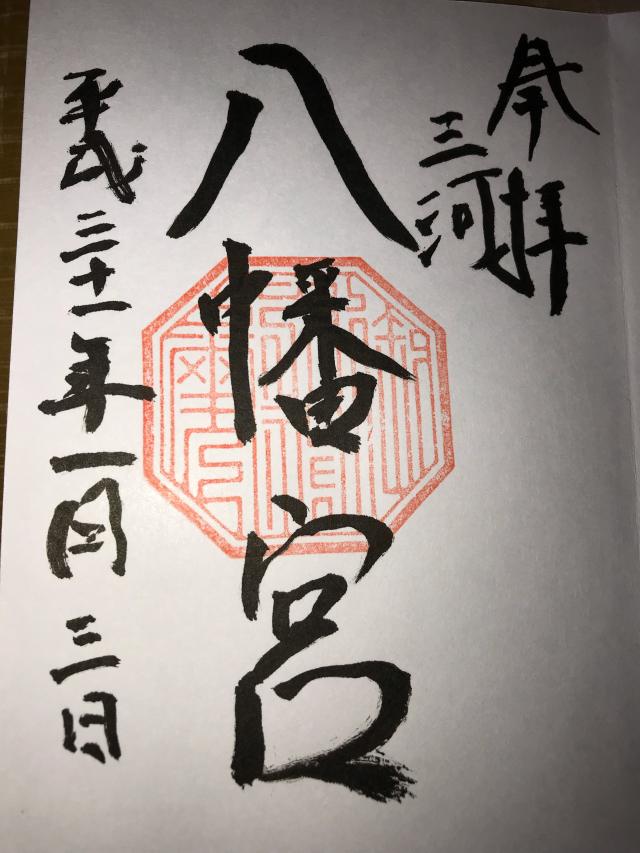 奉拝
三河
八幡宮
平成三十一年一月三日